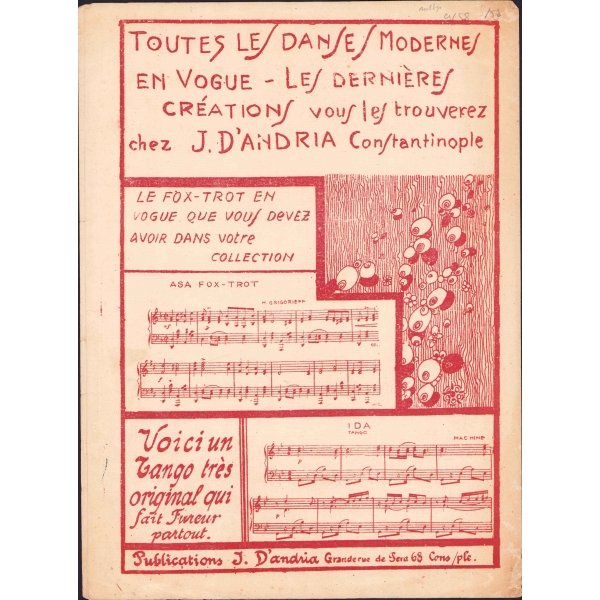 TOUTES LES DANSES MODERNES
EN VOGUE - LES DERNIÈRES
CRÉATIONS vous les trouverez
chez J. D'ANDRIA Constantinople
LE FOX-TROT EN
VOGUE QUE VOUS DEVEZ
AVOIR DANS VOtre
COLLECTION
ASA FOX-TROT
M. GRIGORIEFF
IDA
TANGO
MACHINE
Voici un
Tango très
original qui
fait Fureur
partout.
Publications J. D'andria Grande rue de Pera 68 Cons/ple.